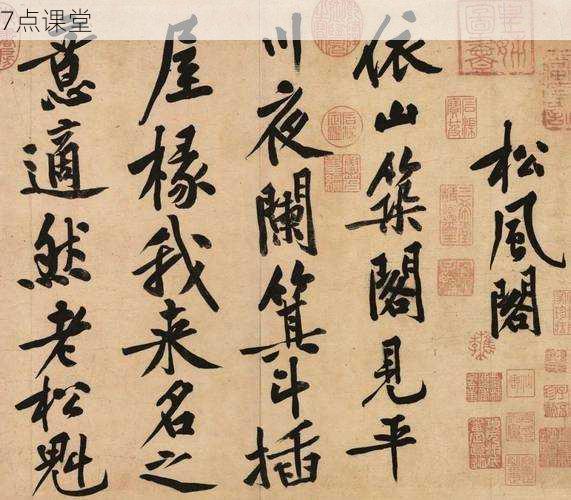 7点课堂
松風閣
依山築閣見平
川夜闌箕斗插
屋椽我来名之
意適然老松魁